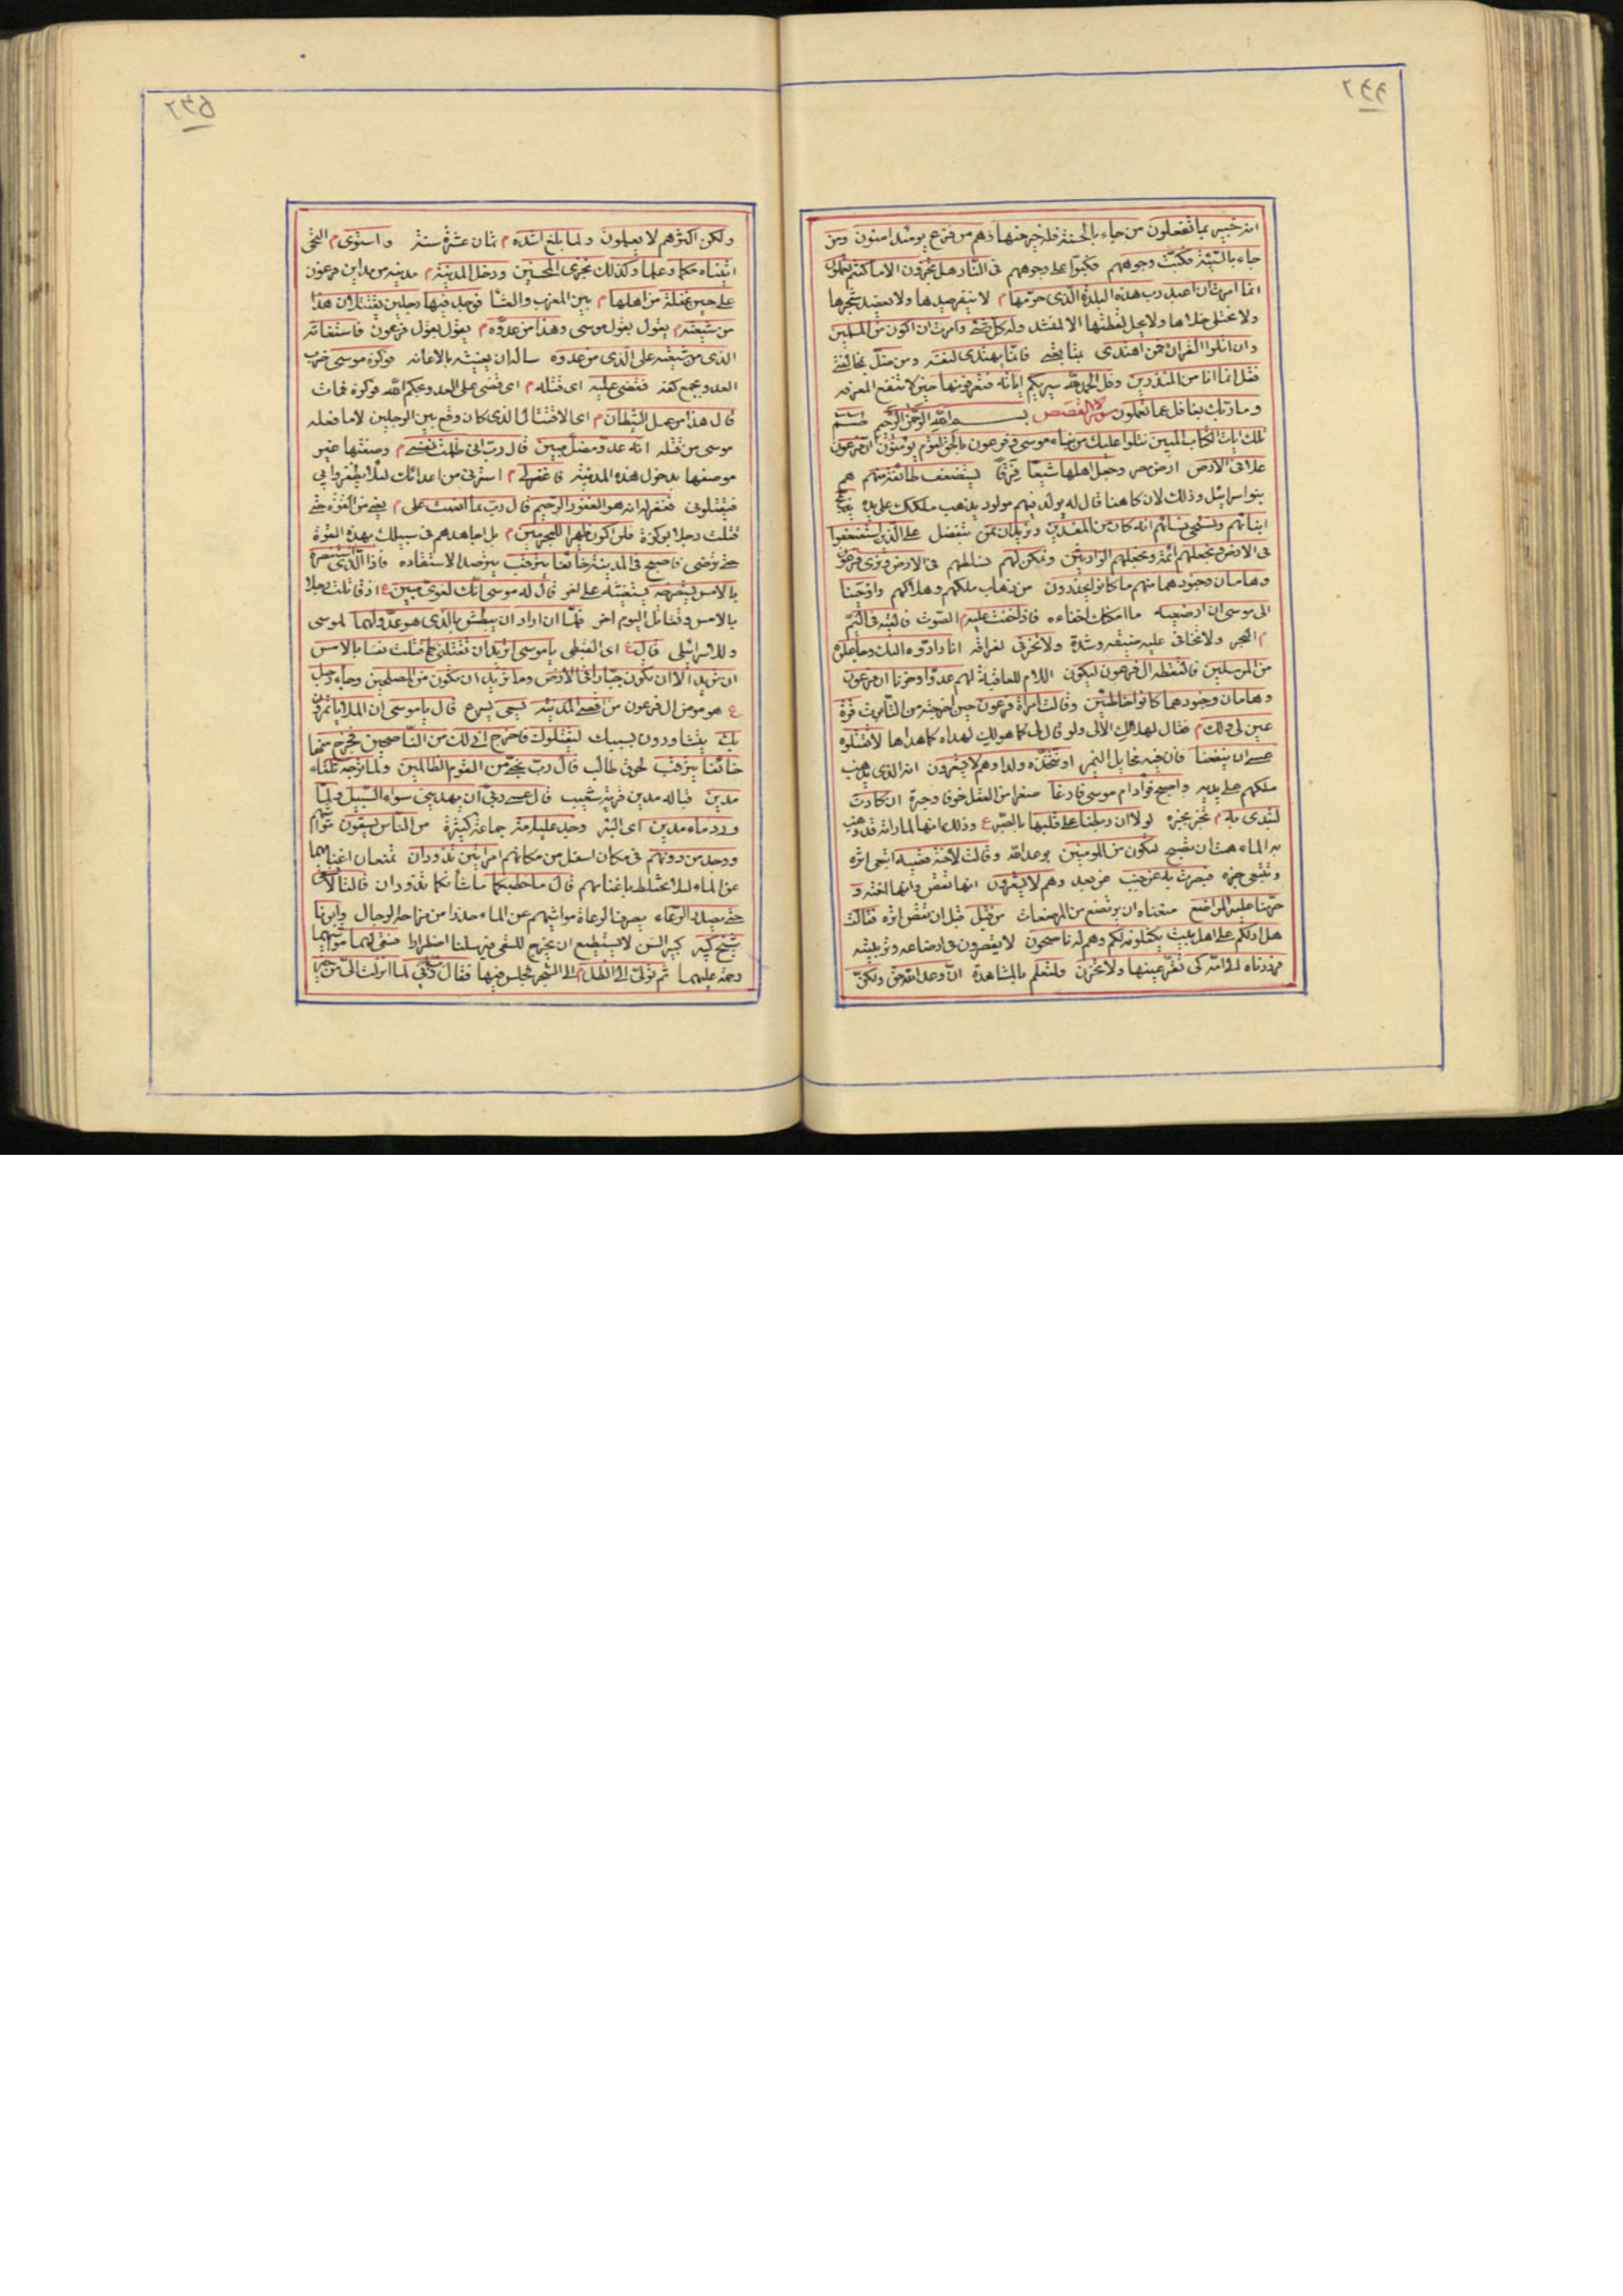 انه خبير بما تفعلون من جاء بالحسنة فله خير منها وهم من فزع يومئذ امنون ومن
جاء بالسيئة فكبت وجوههم فكبوا على وجوههم فى النار هل تجزون الا ما كنتم تعملون
انما امرت ان اعبد رب هذه البلدة الذى حرمها م لا ينفر صيدها ولا يعضد شجرها
ولا يختلى خلاها ولا يحل لقطتها الا لمنشد وله كل شئ وامرت ان اكون من المسلمين
وان اتلوا القران فمن اهتدى فانما يهتدى لنفسه ومن ضل
فقل انما انا من المنذرين وقل الحمد لله سيريكم اياته فتعرفونها حين لا تنفع المعرفه
وما ربك بغافل عما تعملون سورة القصص بسم الله الرحمن الرحيم طسم
تلك ايات الكتاب المبين نتلوا عليك من نباء موسى وفرعون بالحق لقوم يؤمنون ان فرعون
علا فى الارض ارض مصر وجعل اهلها شيعا فرقا يستضعف طائفة منهم هم
بنو اسرائيل وذلك لان كاهنا قال له يولد فيهم مولود يذهب ملكك على يده يذبح
ابنائهم ويستحى نسائهم انه كان من المفسدين ونريد ان نمن نتفضل على الذين استضعفوا
فى الارض ونجعلهم ائمة ونجعلهم الوارثين ونمكن لهم نسلطهم فى الارض ونرى فرعون
وهامان وجنودهما منهم ما كانوا يحذرون من ذهاب ملكهم وهلاكهم واوحينا
الى موسى ان ارضعيه ما امكنك اخفاءه فاذا خفت عليه م الصوت فالقيه فى اليم
م البحر ولا تخافى عليه ضيقه وشدة ولا تحزنى لفراقه انا رادوه اليك وجاعلوه
من المرسلين فالتقطه ال فرعون ليكون اللام للعاقبة لهم عدوا وحزنا ان فرعون
وهامان وجنودهما كانوا خاطئين وقالت امراة فرعون حين اخرجته من التابوت قرة
عين لى ولك م فقال لها لك لا لى ولو قال لى كما هو لك لهداه كما هداها لا تقتلوه
عسى ان ينفعنا فان فيه مخايل اليمن او نتخذه ولدا وهم لا يشعرون انه الذى يذهب
ملكهم على يديه واصبح فؤاد ام موسى فارغا صفرا من العقل خوفا وحيرة ان كادت
لتبدى به م تخبر بخبره لولا ان ربطنا على قلبها بالصبر ع وذلك انها لما راته قد ذهب
به الماء همت ان تصيح لتكون من المؤمنين بوعد الله وقالت لاخته قصيه اتبعى اثره
وتتبعى خبره فبصرت به عن جنب عن بعد وهم لا يشعرون انها تقص وانها اخته و
حرمنا عليه المراضع منعناه ان يرتضع من المرضعات من قبل قبل ان تقص اثره فقالت
هل ادلكم على اهل بيت يكفلونه لكم وهم له ناصحون لا يقصرون فى ارضاعه وتربيته
فرددناه الى امه كى تقر عينها ولا تحزن ولتعلم بالمشاهدة ان وعد الله حق ولكن
٢٣٥
ولكن اكثرهم لا يعلمون ولما بلغ اشده م ثمان عشرة سنة واستوى م التحى
اتيناه حكما وعلما وكذلك نجزى المحسنين ودخل المدينة م مدينه من مداين فرعون
على حين غفلة من اهلها م بين المغرب والعشا فوجد فيها رجلين يقتتلان هذا
من شيعته م يقول بقول موسى وهذا من عدوه م يقول بقول فرعون فاستغاثه
الذى من شيعته على الذى من عدوه ساله ان يغيثه بالاعانه فوكزه موسى ضرب
العدو بجمع كفه فقضى عليه اى قتله م اى قضى على العدو بحكم الله فوكزه فمات
قال هذا من عمل الشيطان م اى الاقتتال الذى كان وقع بين الرجلين لا ما فعله
موسى من قتله انه عدو مضل مبين قال رب انى ظلمت نفسى م وضعتها غير
موضعها بدخول هذه المدينة فاغفر لى م استرنى من اعدائك لئلا يظفروا بى
فيقتلونى فغفر له انه هو الغفور الرحيم قال رب بما انعمت على م يعنى من القوة حتى
قتلت رجلا بوكزة فلن اكون ظهيرا للمجرمين م بل اجاهدهم فى سبيلك بهذه القوة
حتى ترضى فاصبح فى المدينة خائفا يترقب يترصد الاستقاده فاذا الذى استنصره
بالامس يستصرخه يستغيثه على اخر قال له موسى انك لغوى مبين ع اذ قاتلت رجلا
بالامس وتقاتل اليوم اخر فلما ان اراد ان يبطش بالذى هو عدو لهما لموسى
وللاسرائيلى قال ع اى القبطى يا موسى اتريد ان تقتلنى كما قتلت نفسا بالامس
ان تريد الا ان تكون جبارا فى الارض وما تريد ان تكون من المصلحين وجاء رجل
ع هو مومن ال فرعون من اقصى المدينة يسعى يسرع قال يا موسى ان الملا ياتمرون
بك يتشاورون بسببك ليقتلوك فاخرج انى لك من الناصحين فخرج منها
خائفا يترقب لحوق طالب قال رب نجنى من القوم الظالمين ولما توجه تلقاء
مدين قباله مدين قرية شعيب قال عسى ربى ان يهدينى سواء السبيل ولما
ورد ماء مدين اى البئر وجد عليه امة جماعة كثيرة من الناس يسقون مواشيهم
ووجد من دونهم فى مكان اسفل من مكانهم امراتين تذودان تمنعان اغنامهما
عن الماء لئلا يختلط باغنامهم قال ما خطبكما ما شانكما تذودان قالتا لا نسقى
حتى يصدر الرعاء يصرف الرعاة مواشيهم عن الماء حذرا من مزاحمة الرجال وابونا
شيخ كبير كبير السن لا يستطيع ان يخرج للسقى فيرسلنا اضطرارا فسقى لهما مواشيهما
رحمة عليهما ثم تولى الى الظل م الى الشجر فجلس فيها فقال رب انى لما انزلت الى من خير